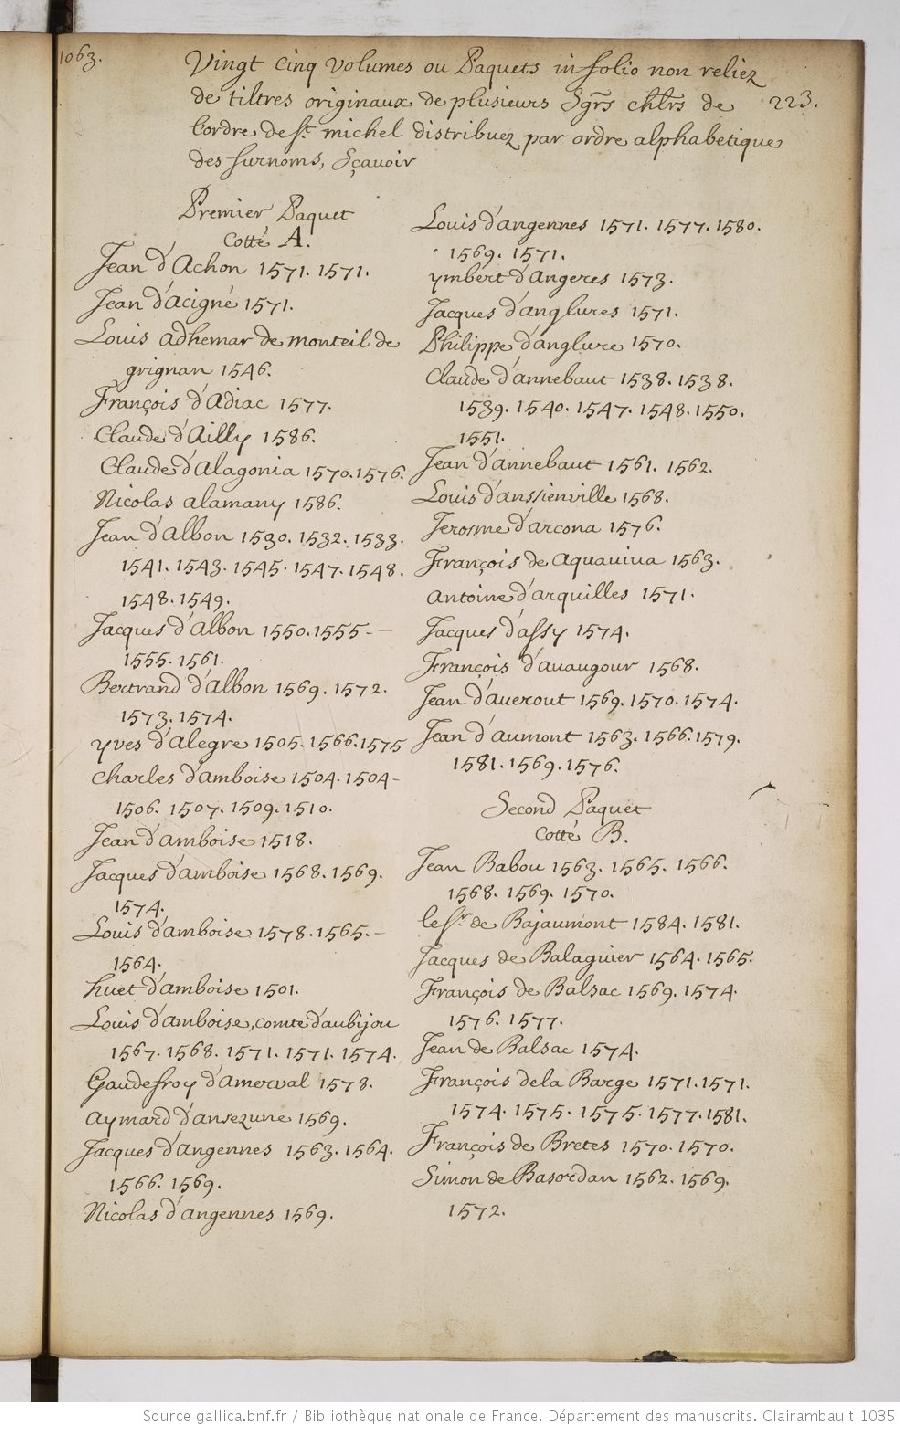 1063.
Vingt Cinq Volumes ou Paquets in folio non reliez
de tiltres originaux de plusieurs Sgrs chlrs de
223.
l'ordre de St. michel distribuez par ordre alphabetique
des surnoms, Sçavoir
Premier Paquet
Cotté A.
Jean d'Achon 1571. 1571.
Jean d'acigné 1571.
Louis adhemar de monteil de
grignan 1546.
François d'Adiac 1577.
Claude d'Ailly 1586.
Claude d'Alagonia 1570. 1576.
Nicolas alamany 1586.
Jean d'Albon 1530. 1532. 1533.
1541. 1543. 1545. 1547. 1548.
1548. 1549.
Jacques d'Albon 1550. 1555. -
1555. 1561.
Bertrand d'Albon 1569. 1572.
1573. 1574.
yves d'Alegre 1505. 1566. 1575
Charles d'amboise 1504. 1504-
1506. 1507. 1509. 1510.
Jean d'amboise 1518.
Jacques d'amboise 1568. 1569.
1574.
Louis d'amboise 1578. 1565. -
1564.
huet d'amboise 1501.
Louis d'amboise, comte d'aubijou
1567. 1568. 1571. 1571. 1574.
Gaudefroy d'amerval 1578.
aymard d'ansezune 1569.
Jacques d'angennes 1563. 1564.
1566. 1569.
Nicolas d'angennes 1569.
Louis d'angennes 1571. 1577. 1580.
1569. 1571.
ymbert d'angeres 1573.
Jacques d'anglures 1571.
Philippe d'anglure 1570.
Claude d'annebaut 1538. 1538.
1539. 1540. 1547. 1548. 1550.
1551.
Jean d'annebaut 1561. 1562.
Louis d'anssienville 1568.
Jerosme d'arcona 1576.
François de aquaviva 1563.
antoine d'arquilles 1571.
Jacques d'assy 1574.
François d'avaugour 1568.
Jean d'averout 1569. 1570. 1574.
Jean d'aumont 1563. 1566. 1579.
1581. 1569. 1576.
Second Paquet
Cotté B.
Jean Babou 1563. 1565. 1566.
1568. 1569. 1570.
le Sr. de Bajaumont 1584. 1581.
Jacques de Balaguier 1564. 1565.
François de Balsac 1569. 1574.
1576. 1577.
Jean de Balsac 1574.
François de la Barge 1571. 1571.
1574. 1575. 1575. 1577. 1581.
François de Bretes 1570. 1570.
Simon de Basordan 1562. 1569.
1572.
Source gallica.bnf.fr / Bibliothèque nationale de France. Département des manuscrits. Clairambault 1035